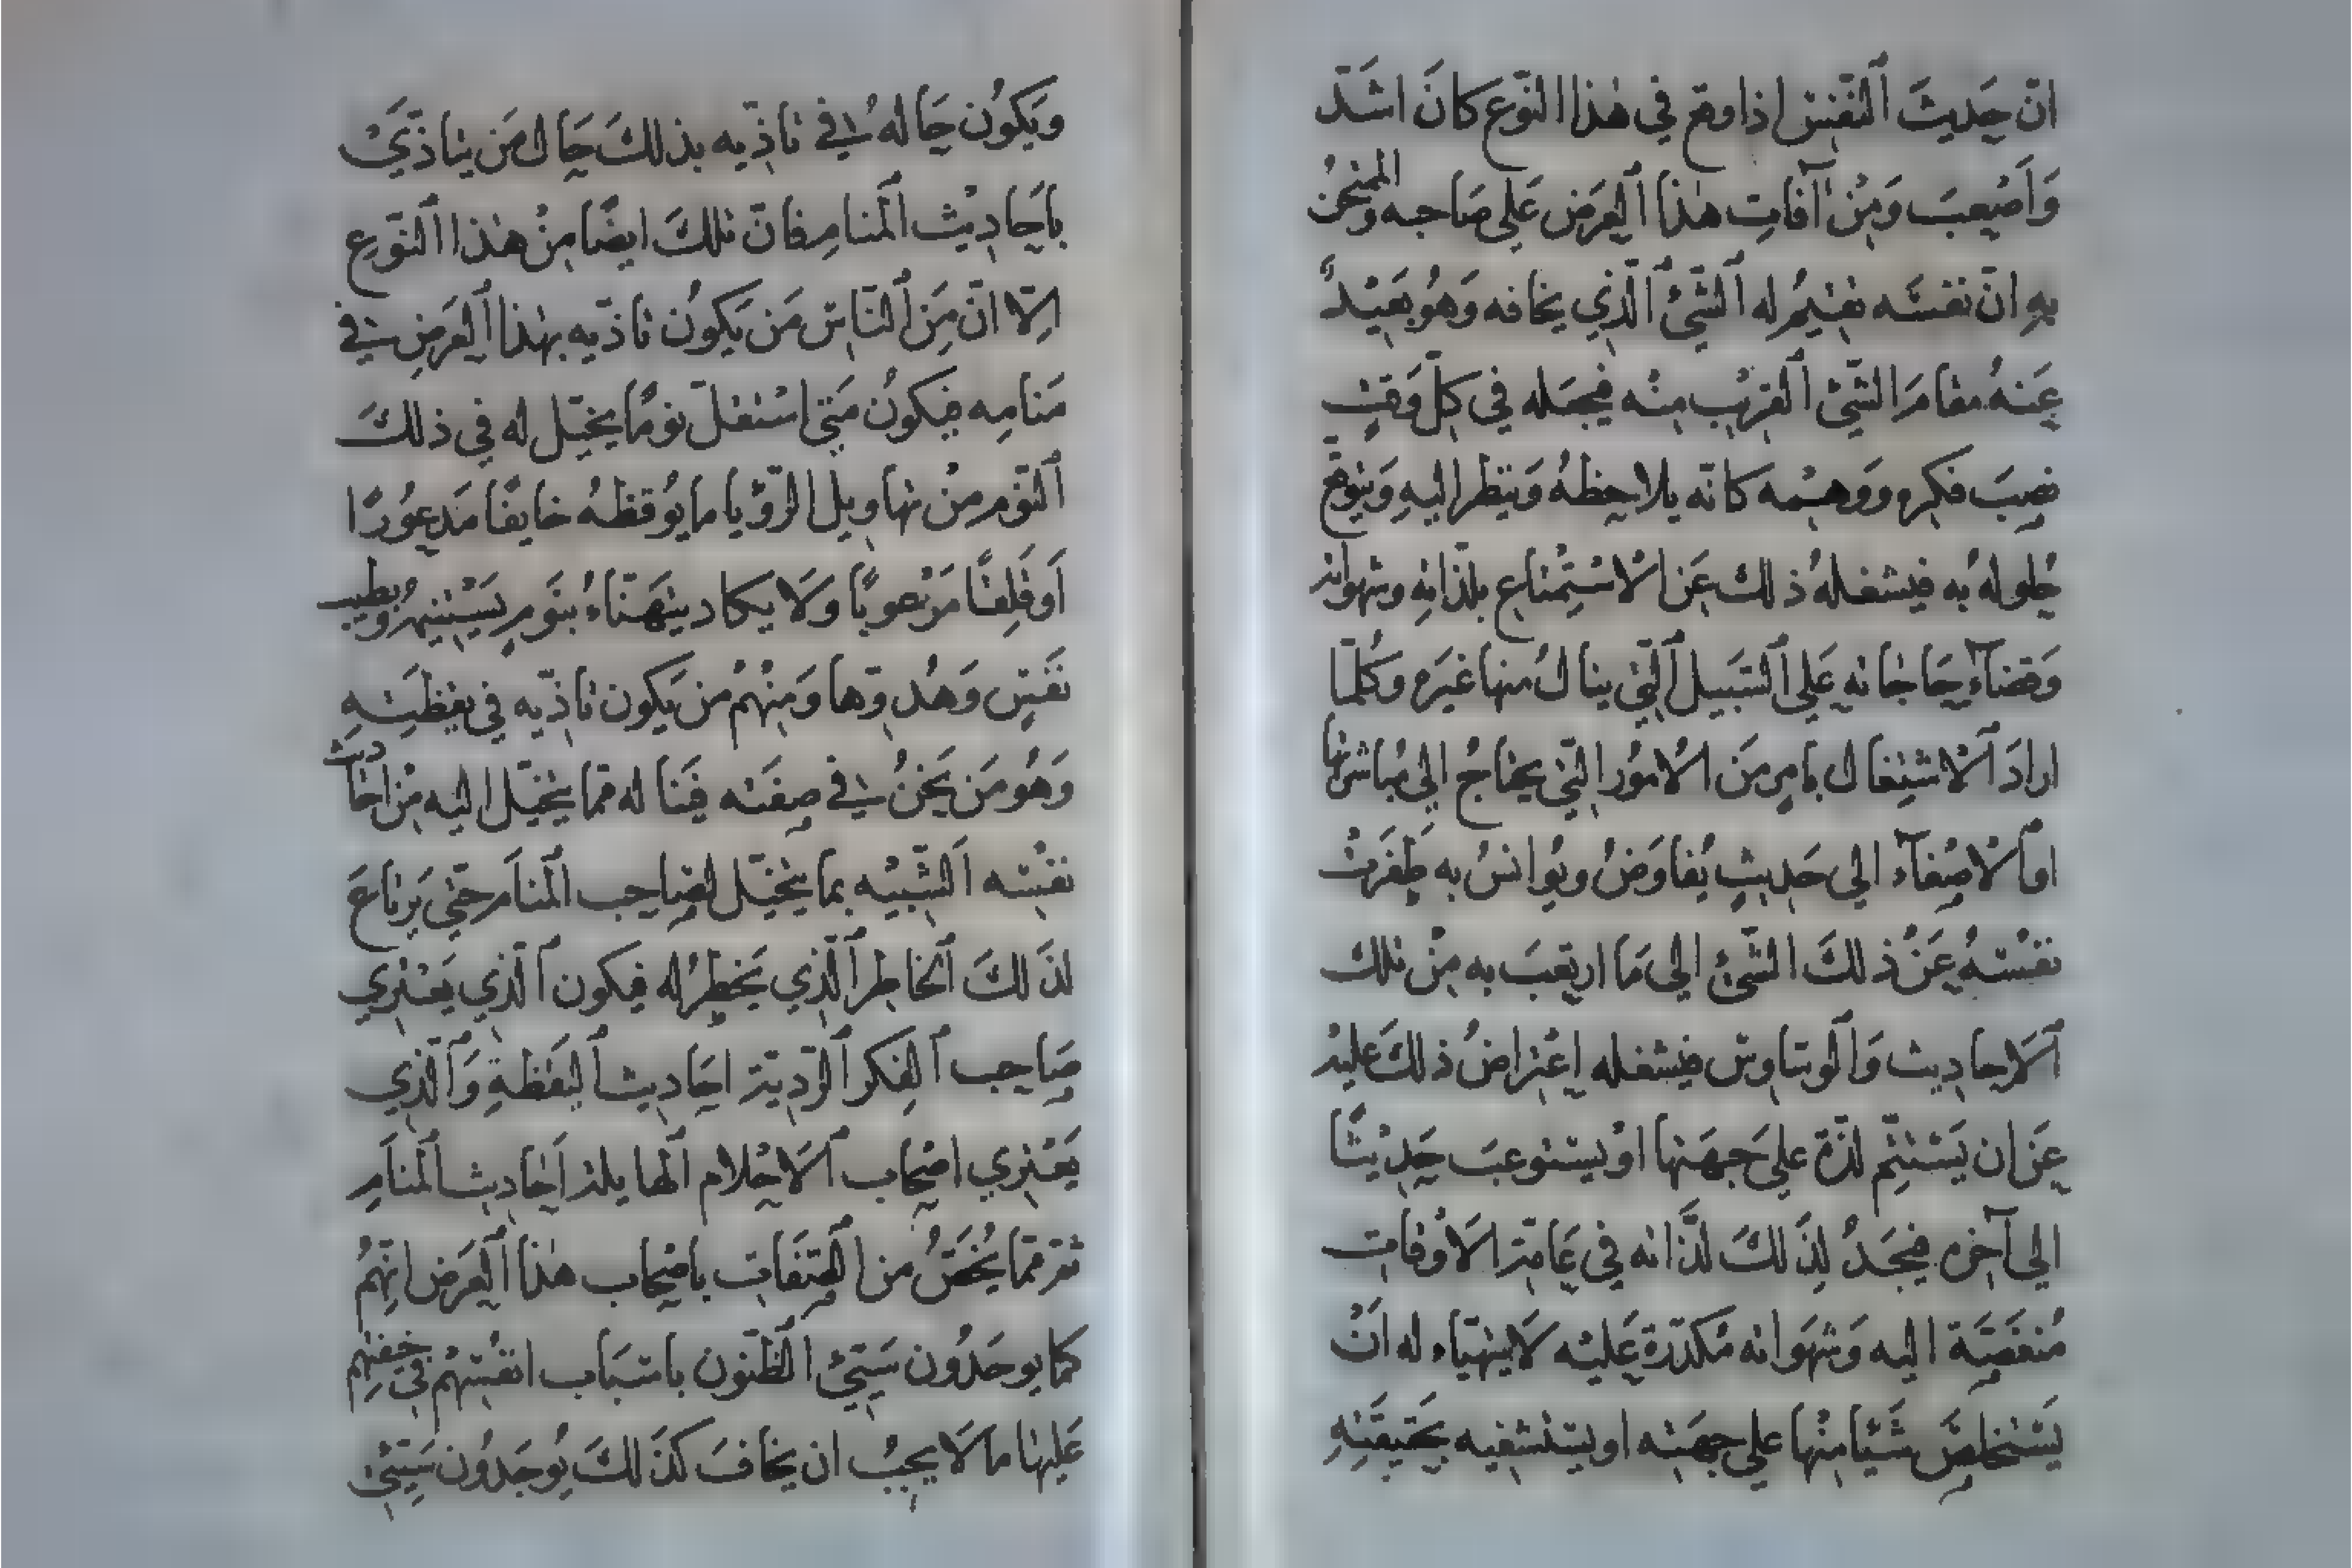 انّ حَديثَ ٱلنّفس اذا وقع في هٰذا النّوع كانَ اشَدّ
وَاَصْعبَ وَمِنْ آفاتِ هٰذا ٱلعَرَض عَلى صَاحبه والممتحَن
بهِ انّ نفسَه تقيمُ له ٱلشّئَ ٱلّذي يخافه وَهُو بَعيدٌ
عَنهُ مقامَ الشّئ ٱلقريب منْه فيجعَله في كلّ وَقتٍ
نصبَ فكره ووهْمه كانّه يلاحظهُ وَينظر اليهِ وَيتوقّع
حُلولهُ به فيشغلهُ ذلك عَن الاسْتِمتاع بلذّاتِه وشهواته
وَقضآءِ حَاجاتهِ عَلى ٱلسَّبيل ٱلّتي ينالُ منها غيَره وكُلّما
ارادَ ٱلاشتِغال بامرٍ مَن الامُور الّتي يحتاجُ الى مُباشرتها
اوٱلاصْغآء الى حَديثٍ يُفاوَضُ ويُوانسُ به طَفَرتْ
نفسْهُ عَنْ ذلكَ الشّئ الى مَا ارتعبَ به مِنْ تلك
ٱلاحاديث وَٱلوسَاوس فيشغله اِعْتِراضُ ذلكَ عليهْ
عَن ان يَسْتتِمّ لذّة على جَهَتها اوْ يستوعبَ حَديْثًا
الى آخره فيجَدُ لِذَلكَ لذّاته في عَامّة الاوْقات
مُنغصَة اليه وَشهَواته مكدّرة عَليْه لَا يتهيّاء له اَنْ
يَستخلصَ شَيْئا منْها على جهَته او يسْتشفيه بحَقيقَتهِ
وَيَكُون حَالهُ في تاذّيه بذلكَ حَال مَن يتاذّىَ
باحَاديْث ٱلمنام فانّ تلكَ ايضًا مِنْ هٰذا ٱلنّوع
الّا انّ مِنَ ٱلنّاس مَن يَكونُ تاذّيه بهٰذا ٱلعَرضِ في
مَنامِه فيكونُ مَتى اسْتثقلَ نومًا يخيّل له في ذلكَ
ٱلنّوم مِنْ تهاويل الرّؤيا ما يُوقظهُ خايفًا مَذعوُرًا
اَو قلِقًا مَرْعوبًا وَلَا يكاد يتهَنّاءُ بنَوم يَسْتنيمُ ويطيب
نفَسٍ وَهُدوّها وَمِنْهُمْ من يَكون تاذّيه في يقظتِهِ
وَهُو مَن نحَنُ في صفَته فيَناله ممّا يتخيّل اليه مِنْ احَاديث
نفسْه اَلشّبيْه بما يتخيّل لصَاحب ٱلمنام حتّى يَرتاعَ
لذَلكَ ٱلخاطر ٱلّذي يَخطرُ له فيكون ٱلّذي يَعْتري
صَاحب ٱلفِكر ٱلرّديّة احَاديث ٱليقَظةِ وَٱلّذي
يَعْتري اصْحاب ٱلَاحْلام ٱلمهايلة اَحَاديث ٱلمنَام
ثمّ ممّا يُخَصُّ من ٱلصّفَات باصْحاب هٰذا ٱلعَرض انّهمُ
كما يوجَدُون سَيّئ الظّنون باسَباب انفسْهُمْ في خيفتهم
عَليْها ما لَا يجبُ ان يخافَ كذَلكَ يُوجَدُون سَيّئ